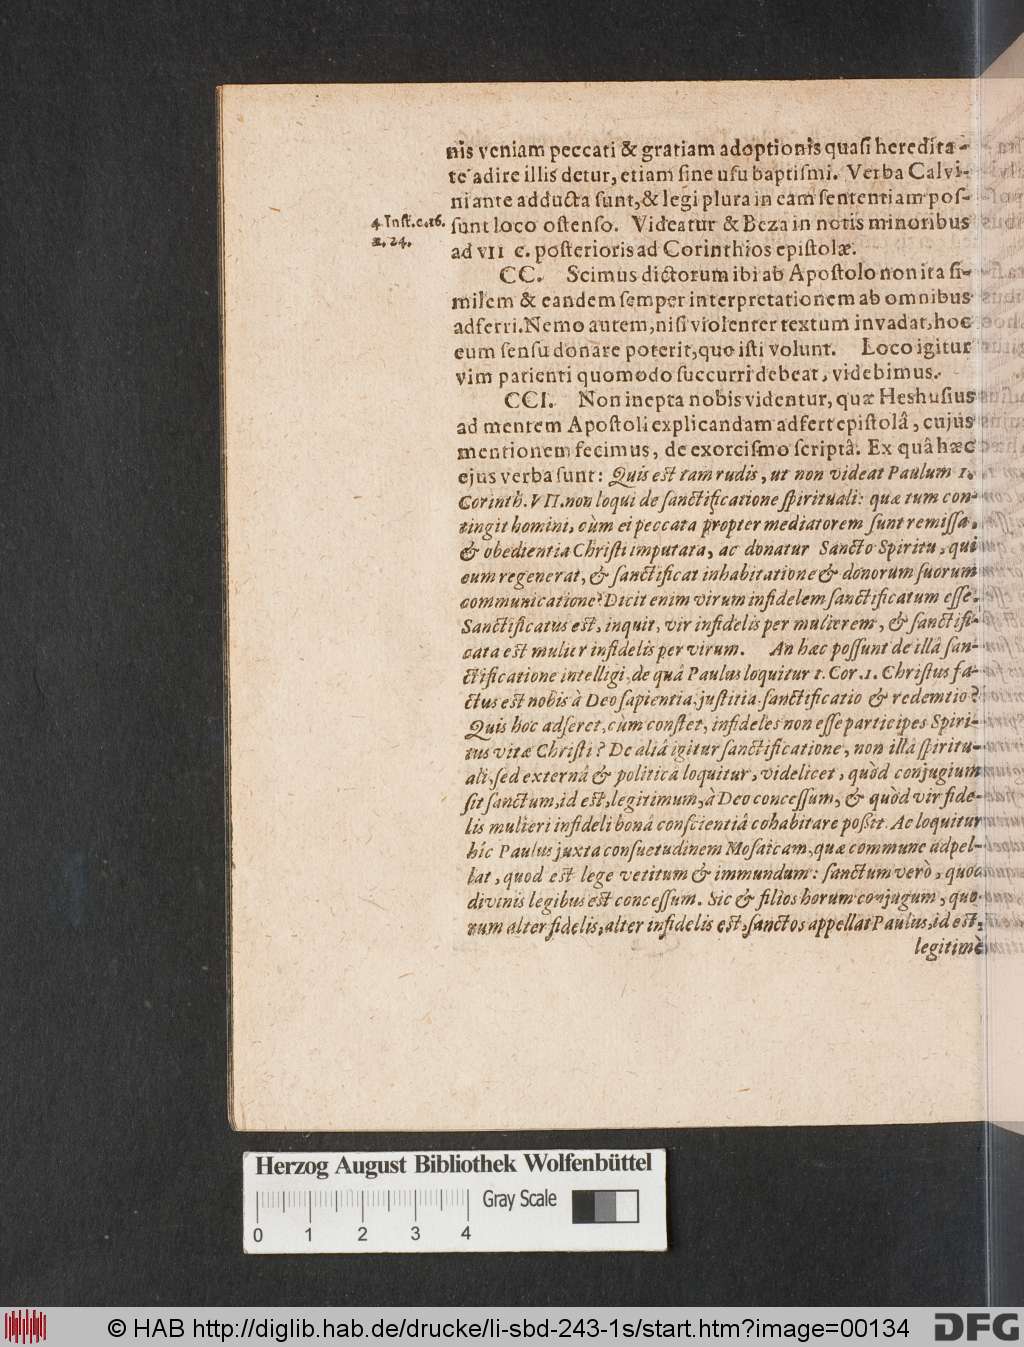 nis veniam peccati & gratiam adoptionis quasi heredita-
te adire illis detur, etiam sine usu baptismi. Verba Calvi-
ni ante adducta sunt, & legi plura in eam sententiam pos-
4 Inst. c. 16.
s. 24.
sunt loco ostenso. Videatur & Beza in notis minoribus
ad VII c. posterioris ad Corinthios epistolæ.
CC. Scimus dictorum ibi ab Apostolo non ita si-
milem & eandem semper interpretationem ab omnibus
adferri. Nemo autem, nisi violenter textum invadat, hoc
eum sensu donare poterit, quo isti volunt. Loco igitur
vim patienti quomodo succurri debeat, videbimus.
CCI. Non inepta nobis videntur, quæ Heshusius
ad mentem Apostoli explicandam adfert epistolâ, cujus
mentionem fecimus, de exorcismo scriptâ. Ex quâ hæc
ejus verba sunt: Quis est tam rudis, ut non videat Paulum 1.
Corinth. VII. non loqui de sanctificatione spirituali: quæ tum con-
tingit homini, cùm ei peccata propter mediatorem sunt remissa,
& obedientia Christi imputata, ac donatur Sancto Spiritu, qui
eum regenerat, & sanctificat inhabitatione & donorum suorum
communicatione? Dicit enim virum infidelem sanctificatum esse.
Sanctificatus est, inquit, vir infidelis per mulierem, & sanctifi-
cata est mulier infidelis per virum. An hæc possunt de illâ san-
ctificatione intelligi, de quâ Paulus loquitur 1. Cor. 1. Christus fa-
ctus est nobis à Deo sapientia, justitia, sanctificatio & redemtio?
Quis hoc adseret, cùm constet, infideles non esse participes Spiri-
tus vitæ Christi? De aliâ igitur sanctificatione, non illâ spiritu-
ali, sed externâ & politicâ loquitur, videlicet, quòd conjugium
sit sanctum, id est, legitimum, à Deo concessum, & quòd vir fide-
lis mulieri infideli bonâ conscientiâ cohabitare possit. Ac loquitur
hîc Paulus juxta consuetudinem Mosaicam, quæ commune adpel-
lat, quod est lege vetitum & immundum: sanctum verò, quod
divinis legibus est concessum. Sic & filios horum conjugum, quo-
rum alter fidelis, alter infidelis est, sanctos appellat Paulus, id est,
legitimè
Herzog August Bibliothek Wolfenbüttel
Gray Scale
0 1 2 3 4
© HAB http://diglib.hab.de/drucke/li-sbd-243-1s/start.htm?image=00134
DFG